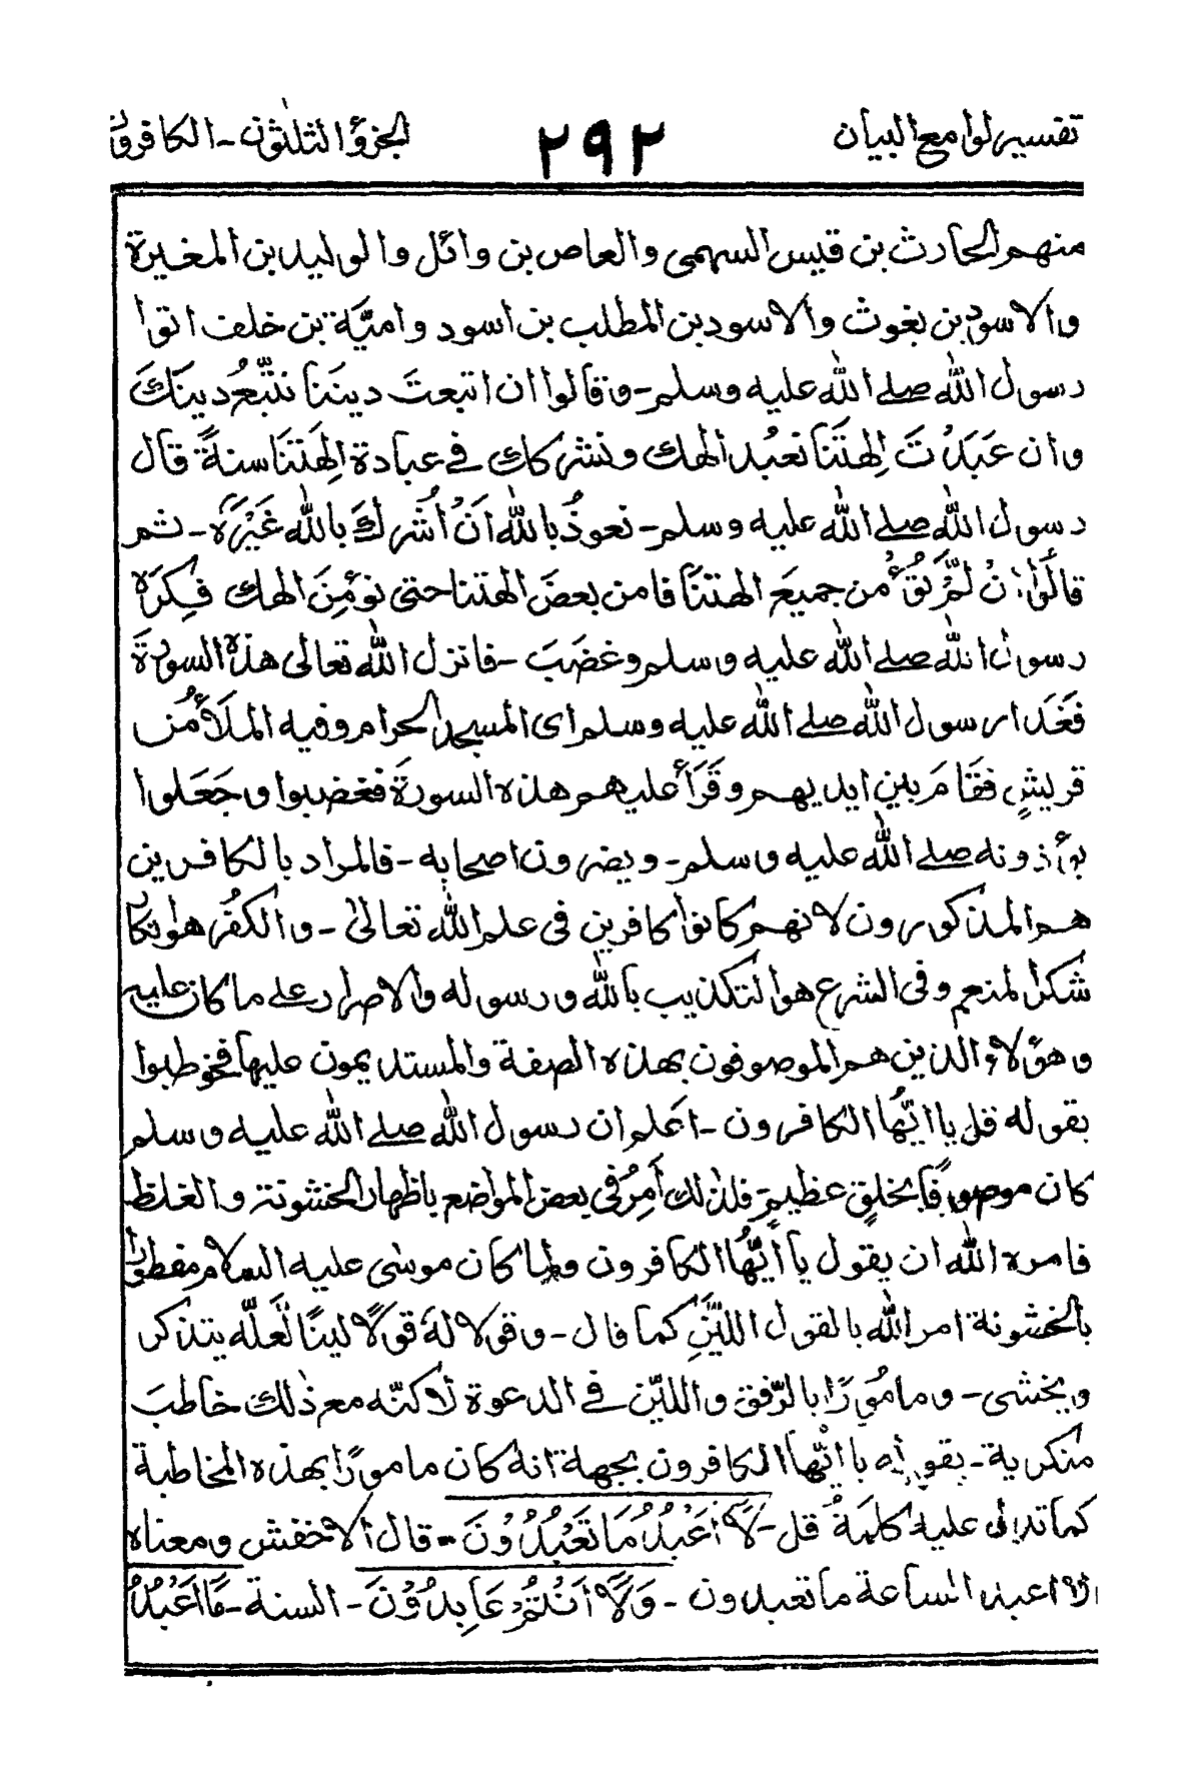 تفسير لوامع البيان ٢٩٢ الجزؤ الثلثون - الكافرون
منهم الحارث بن قيس السهمى والعاص بن وائل والوليد بن المغيرة
والاسود بن يغوث والاسود بن المطلب بن اسود واميّة بن خلف اتوا
رسول الله صلے الله عليه وسلم - وقالوا ان اتبعتَ دينَنا نتّبعُ دينَكَ
وان عَبَدْتَ اٰلهتَنا نعبُد الٰهك ونشركك فے عبادة اٰلهتَنا سنةً قال
رسول الله صلے الله عليه وسلم - نعوذُ بالله اَنْ اُشركَ بالله غَيْرَهٗ - ثم
قالوا اِنْ لَّمْ تُؤْمن جميعَ الهتنَا فامن بعضَ الهتنا حتى نؤمِنَ الهك فكِرَهَ
رسول الله صلے الله عليه وسلم وغضَبَ - فانزل الله تعالى هذه السورةَ
فَغَدا رسول الله صلے الله عليه وسلم اى المسجد الحرام وفيه الملَأُ من
قريشٍ فقَامَ بين ايديهم وقَرَأَ عليهم هذه السورةَ فغضبوا وجَعَلوا
يؤذونه صلے الله عليه وسلم - ويضرون اصحابه - فالمراد بالكافرين
هم المذكورون لانهم كانوا كافرين فى علم الله تعالىٰ - والكفُر هو انكار
شكر المنعم وفى الشرع هو التكذيب بالله ورسوله والاصرار علے ما كان عليه
وهؤلاء الذين هم الموصوفون بهذه الصفة والمستديمون عليها فخوطبوا
بقوله قل يا ايّها الكافرون - اعلم ان رسول الله صلے الله عليه وسلم
كان موصوفًا بخلقٍ عظيمٍ فلذلك اُمِرَ فى بعض المواضع باظهار الخشونة والغلظ
فامره الله ان يقول يا أيّها الكافرون ولما كان موسٰى عليه السلام مفطورا
بالخشونة امر الله بالقول الليّنِ كما قال - وقولا لهٗ قولًا لينًا لَّعلّه يتذكر
ويخشى - ومامورًا بالرّفق والليّن فے الدعوة لاكنّه مع ذلك خاطبَ
منكريه - بقوله يا ايّها الكافرون بجهة انه كان مامورًا بهذه المخاطبة
كما تدل عليه كلمةُ قل - لَآ اَعْبُدُ مَا تَعْبُدُوْنَ - قال الاخفش ومعناه
لا اعبد الساعة ما تعبدون - وَلَآ اَنْتُمْ عَابِدُوْنَ - السنة - مَا اَعْبُدُ